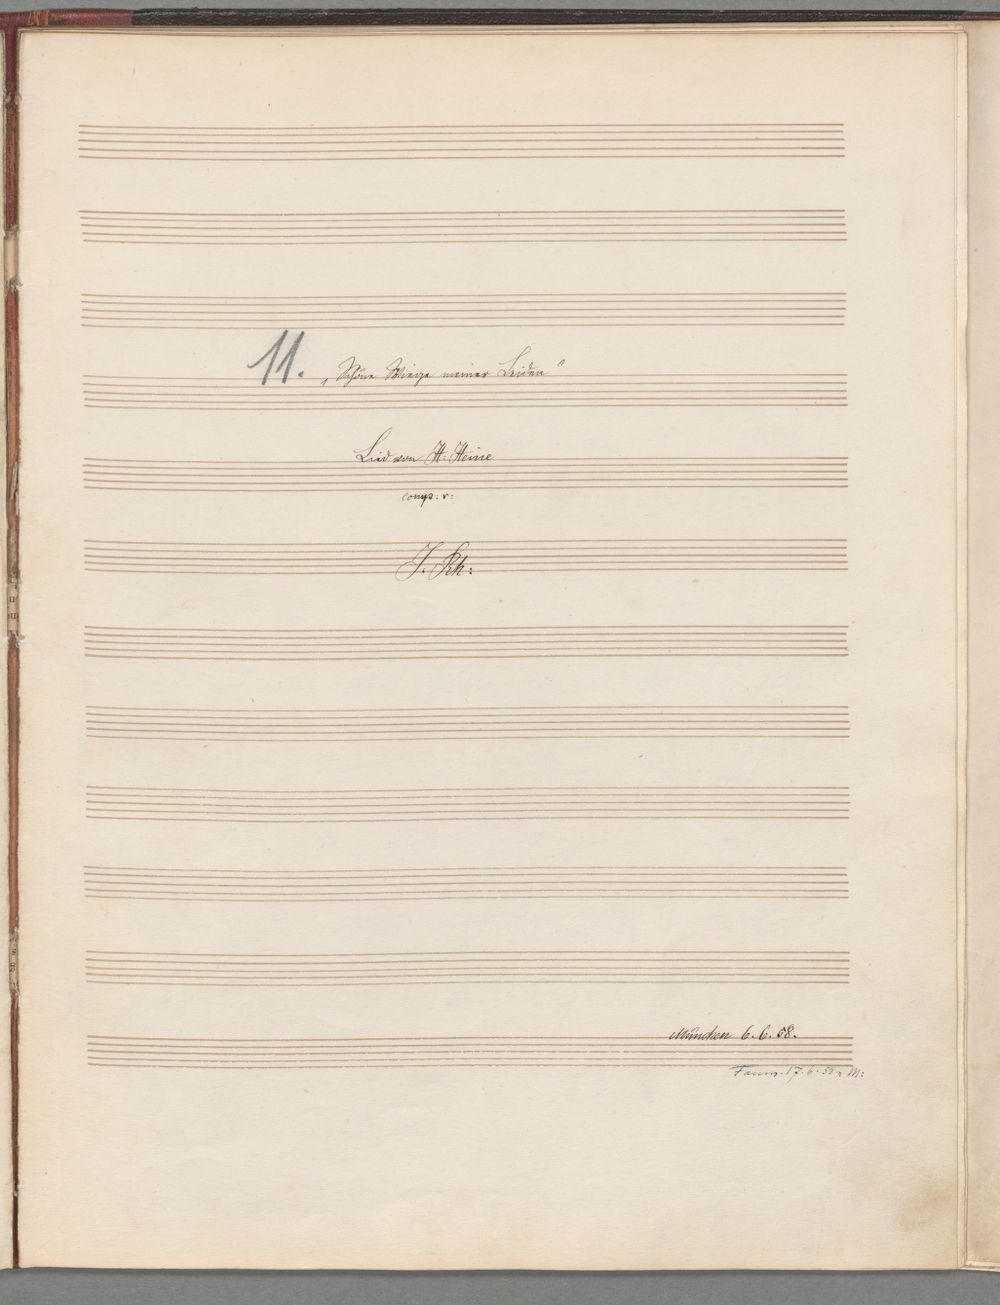 11. „Schöne Wiege meiner Leiden"
Lied von H: Heine
comp: v:
J. Rh:
München 6. 6. 58.
17. 6. 58 M: